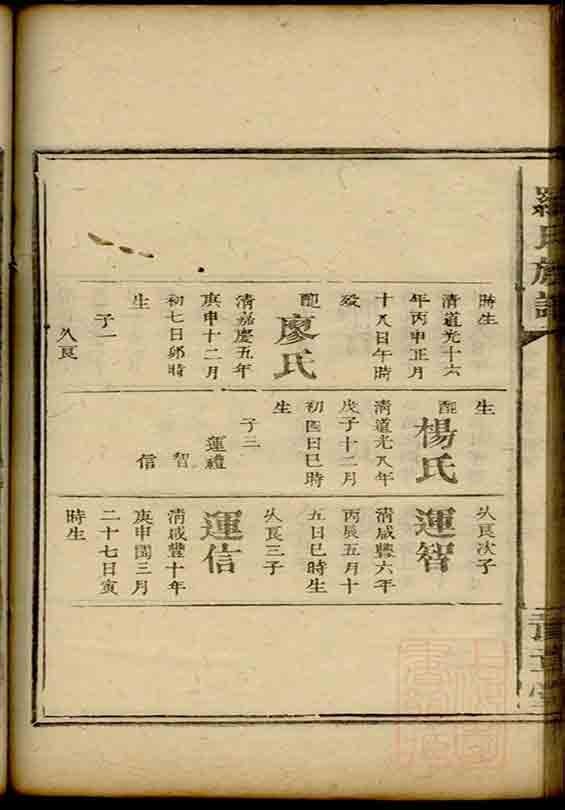 羅氏族譜
時生
清道光十六
年丙申正月
十八日午時
歿
配
廖氏
清嘉慶五年
庚申十二月
初七日卯時
生
子一
久良
生
配
楊氏
清道光八年
戊子十二月
初四日巳時
生
子三
運禮
智
信
久良次子
運智
清咸豐六年
丙辰五月十
五日巳時生
久良三子
運信
清咸豐十年
庚申閏三月
二十七日寅
時生